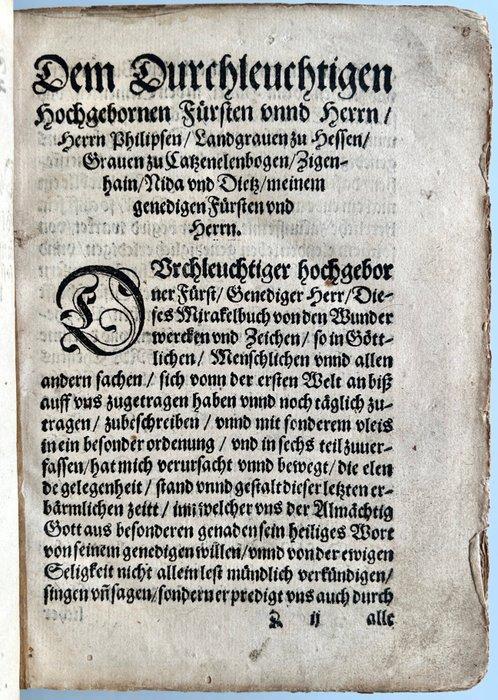 Dem Durchleuchtigen
Hochgebornen Fürsten vnnd Herrn/
Herrn Philipsen/ Landgrauen zu Hessen/
Grauen zu Catzenelenbogen/ Zigen-
hain/ Nida vnd Dietz/ meinem
genedigen Fürsten vnd
Herrn.
DVrchleuchtiger hochgebor
ner Fürst/ Genediger Herr/ Die-
ses Mirakelbuch von den Wunder
wercken vnd Zeichen/ so in Gött-
lichen/ Menschlichen vnnd allen
andern sachen/ sich vonn der ersten Welt an biß
auff vns zugetragen haben vnnd noch täglich zu-
tragen/ zubeschreiben/ vnnd mit sonderem vleis
in ein besonder ordenung/ vnd in sechs teil zuuer-
fassen/ hat mich verursacht vnnd bewegt/ die elen
de gelegenheit/ stand vnnd gestalt dieser letzten er-
bärmlichen zeitt/ inn welcher vns der Almächtig
Gott aus besonderen genaden sein heiliges Wort
von seinem genedigen willen/ vnnd von der ewigen
Seligkeit nicht allein lest mündlich verkündigen/
singen vñ sagen/ sondern er predigt vns auch durch
ij alle